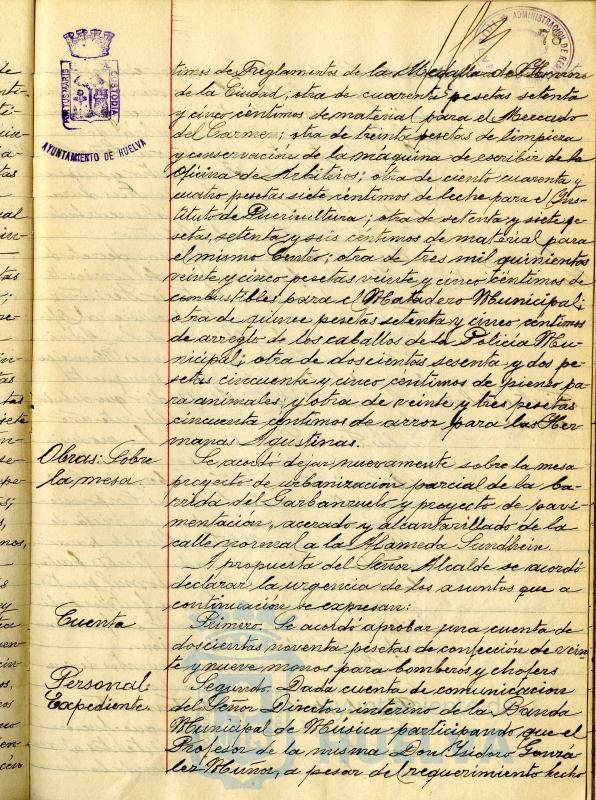 PORTUS MARIS
CUSTODIA
AYUNTAMIENTO DE HUELVA
ADMINISTRACION DE
78
timos de Reglamentos de la Medalla de Honor
de la Ciudad; otra de cuarenta pesetas setenta
y cinco céntimos de material para el Mercado
del Carmen; otra de treinta pesetas de limpieza
y conservación de la máquina de escribir de la
Oficina de Arbitrios; otra de ciento cuarenta y
cuatro pesetas siete céntimos de leche para el Ins-
tituto de Puericultura; otra de setenta y siete pe-
setas, setenta y seis céntimos de material para
el mismo Centro; otra de tres mil quinientas
veinte y cinco pesetas veinte y cinco céntimos de
combustibles para el Matadero Municipal;
otra de quince pesetas setenta y cinco céntimos
de arreglo de los caballos de la Policía Mu-
nicipal; otra de doscientas sesenta y dos pe-
setas cincuenta y cinco centimos de pienso pa-
ra animales; y otra de veinte y tres pesetas
cincuenta centimos de arroz para las Her-
manas Agustinas.
Obras: Sobre
la mesa
Se acordó dejar nuevamente sobre la mesa
proyecto de urbanización parcial de la ba-
rriada del Garbanzuelo y proyecto de pavi-
mentación, acerado y alcantarillado de la
calle normal a la Alameda Sundhein.
A propuesta del Señor Alcalde se acordó
declarar la urgencia de los asuntos que a
continuación se expresan:
Cuenta
Primero. Se acordó aprobar una cuenta de
doscientas noventa pesetas de confección de vein-
te y nueve monos para bomberos y chofers
Personal:
Expediente.
Segundo. Dada cuenta de comunicacion
del Señor Director interino de la Banda
Municipal de Música participando que el
Profesor de la misma Don Isidoro Gonzá-
lez Muñoz, a pesar del requerimiento hecho